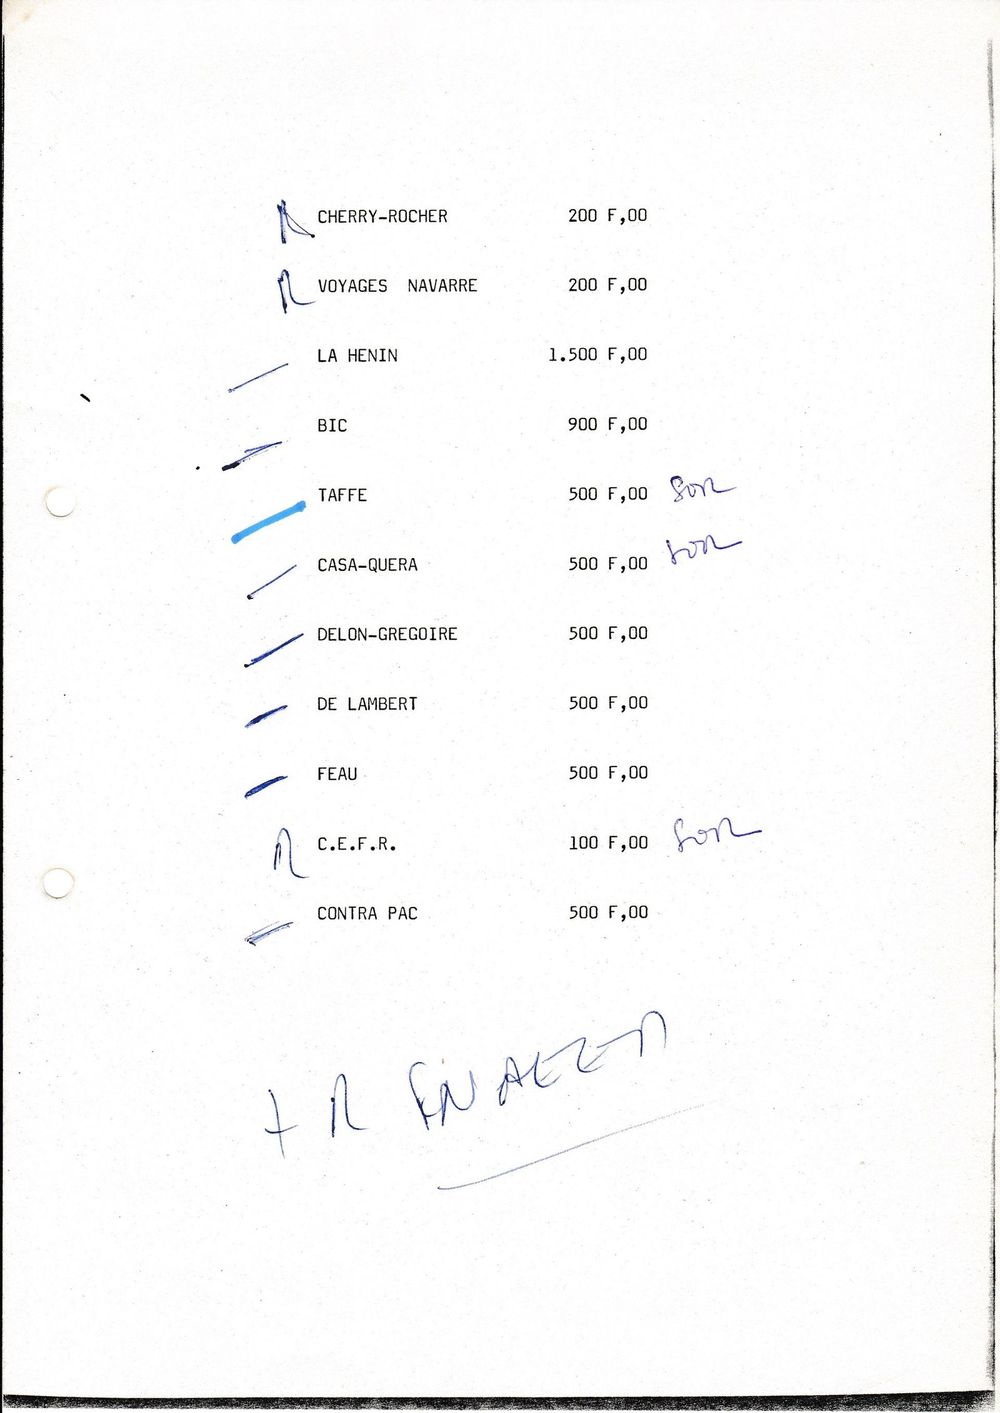 R CHERRY-ROCHER 200 F,00
R VOYAGES NAVARRE 200 F,00
LA HENIN 1.500 F,00
BIC 900 F,00
TAFFE 500 F,00
CASA-QUERA 500 F,00
DELON-GREGOIRE 500 F,00
DE LAMBERT 500 F,00
FEAU 500 F,00
R C.E.F.R. 100 F,00
CONTRA PAC 500 F,00
+ R